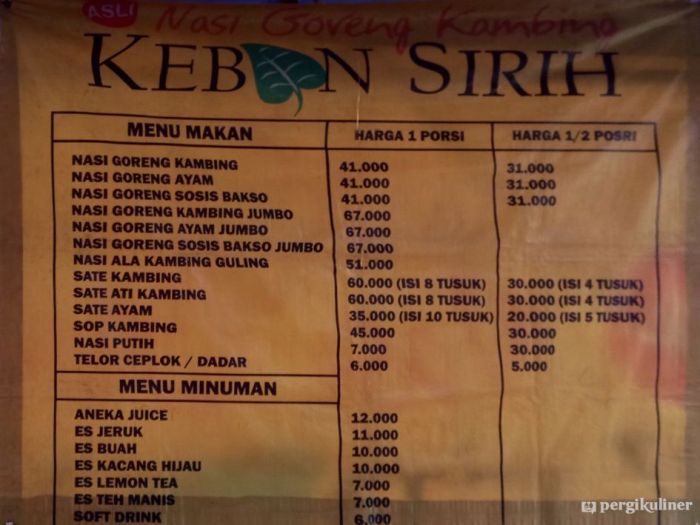 ASLI Nasi Goreng Kambing
KEBON SIRIH
MENU MAKAN HARGA 1 PORSI HARGA 1/2 POSRI
NASI GORENG KAMBING 41.000 31.000
NASI GORENG AYAM 41.000 31.000
NASI GORENG SOSIS BAKSO 41.000 31.000
NASI GORENG KAMBING JUMBO 67.000
NASI GORENG AYAM JUMBO 67.000
NASI GORENG SOSIS BAKSO JUMBO 67.000
NASI ALA KAMBING GULING 51.000
SATE KAMBING 60.000 (ISI 8 TUSUK) 30.000 (ISI 4 TUSUK)
SATE ATI KAMBING 60.000 (ISI 8 TUSUK) 30.000 (ISI 4 TUSUK)
SATE AYAM 35.000 (ISI 10 TUSUK) 20.000 (ISI 5 TUSUK)
SOP KAMBING 45.000 30.000
NASI PUTIH 7.000 30.000
TELOR CEPLOK / DADAR 6.000 5.000
MENU MINUMAN
ANEKA JUICE 12.000
ES JERUK 11.000
ES BUAH 10.000
ES KACANG HIJAU 10.000
ES LEMON TEA 7.000
ES TEH MANIS 7.000
SOFT DRINK 6.000
pergikuliner